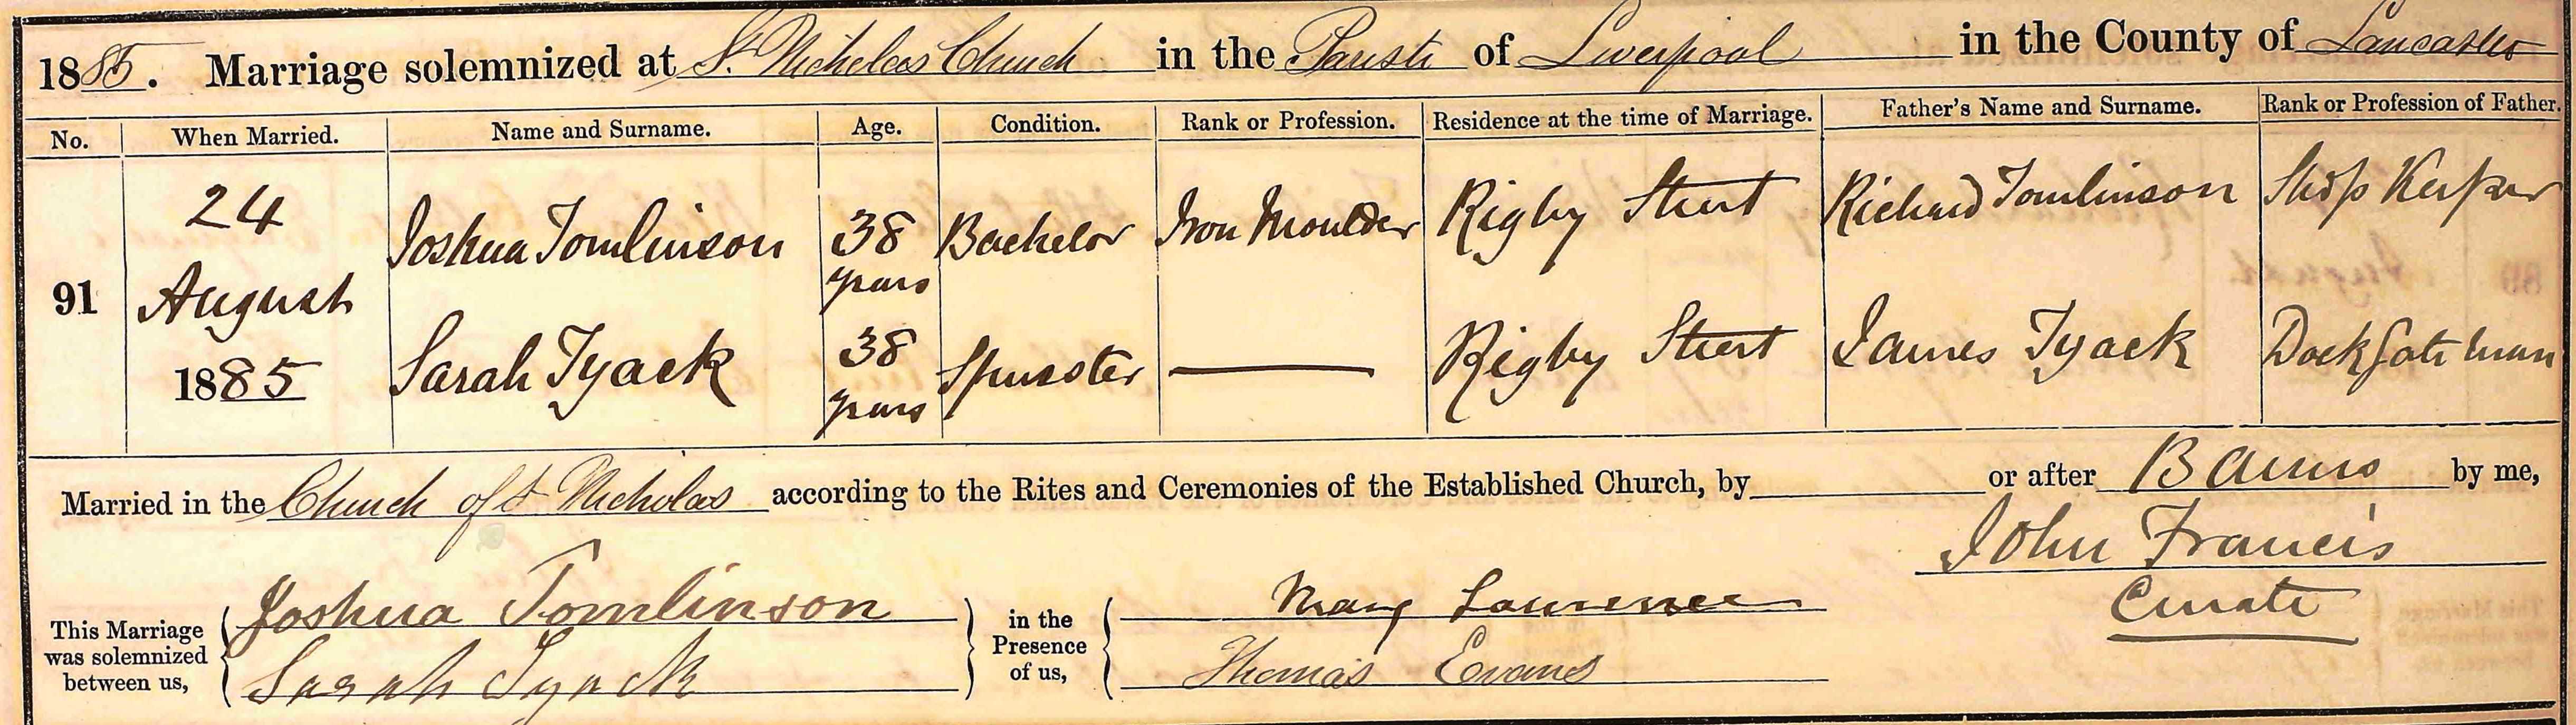 1885. Marriage solemnized at St. Nicholas Church in the Parish of Liverpool in the County of Lancaster
No. When Married. Name and Surname. Age. Condition. Rank or Profession. Residence at the time of Marriage. Father's Name and Surname. Rank or Profession of Father.
91 24 August 1885
Joshua Tomlinson 38 years Bachelor Iron Moulder Rigby Street Richard Tomlinson Shop Keeper
Sarah Tyack 38 years Spinster — Rigby Street James Tyack Dock Gate man
Married in the Church of St Nicholas according to the Rites and Ceremonies of the Established Church, by or after Banns by me,
John Francis
Curate
This Marriage was solemnized between us, Joshua Tomlinson Sarah Tyack in the Presence of us, Mary Lawrence Thomas Evans